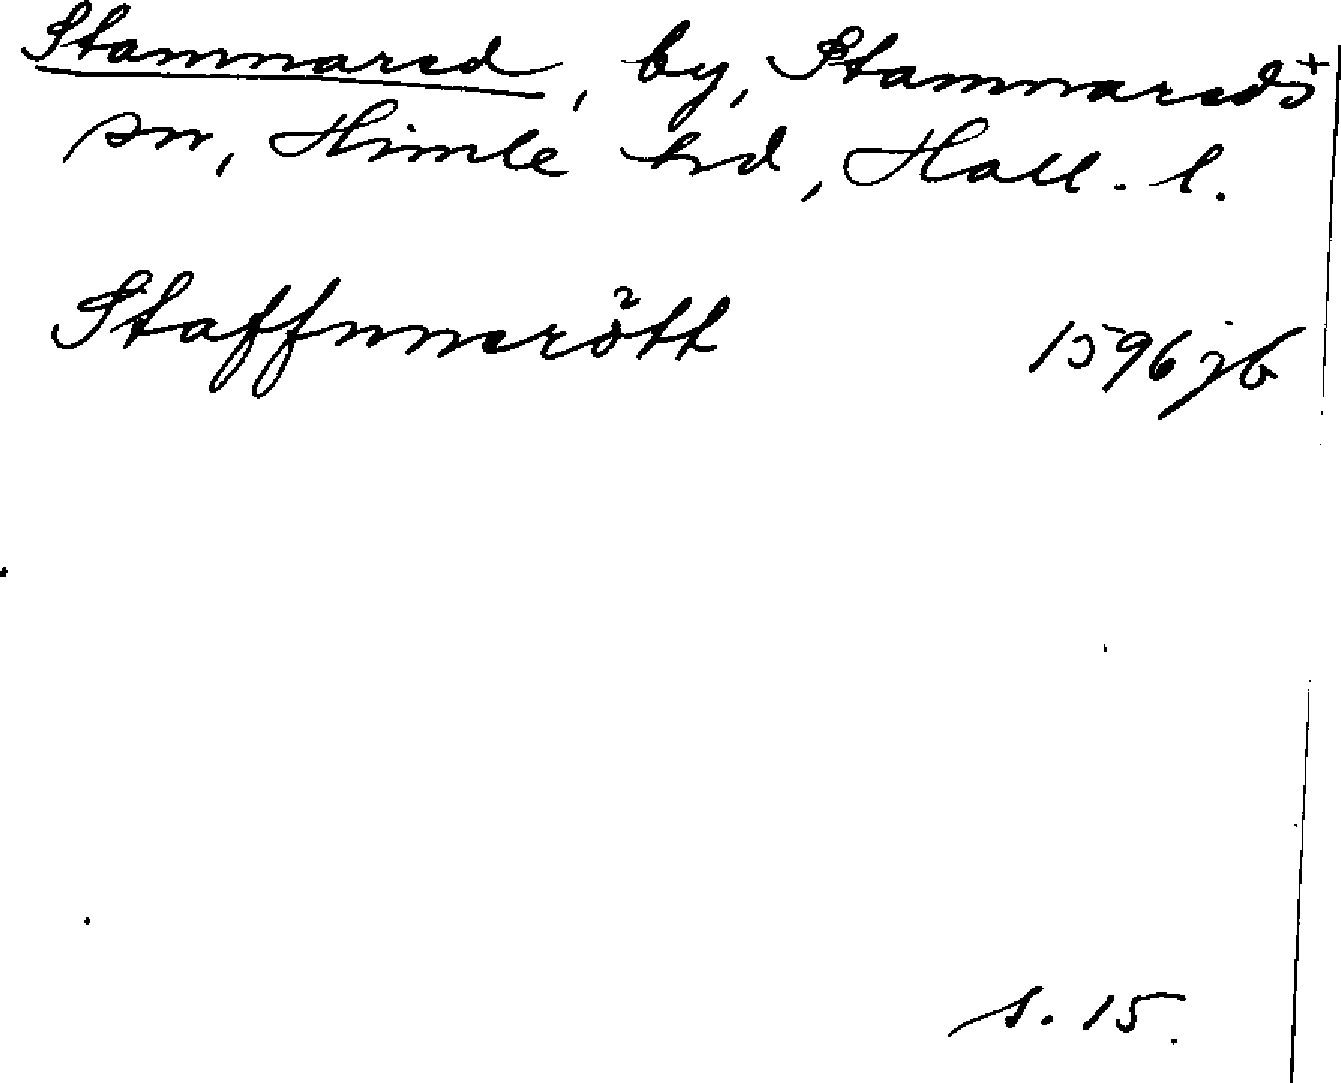 Stamnared, by, Stamnareds+
sn, Himle hd, Hall. l.
Staffnnerött 1596 jb
s. 15.